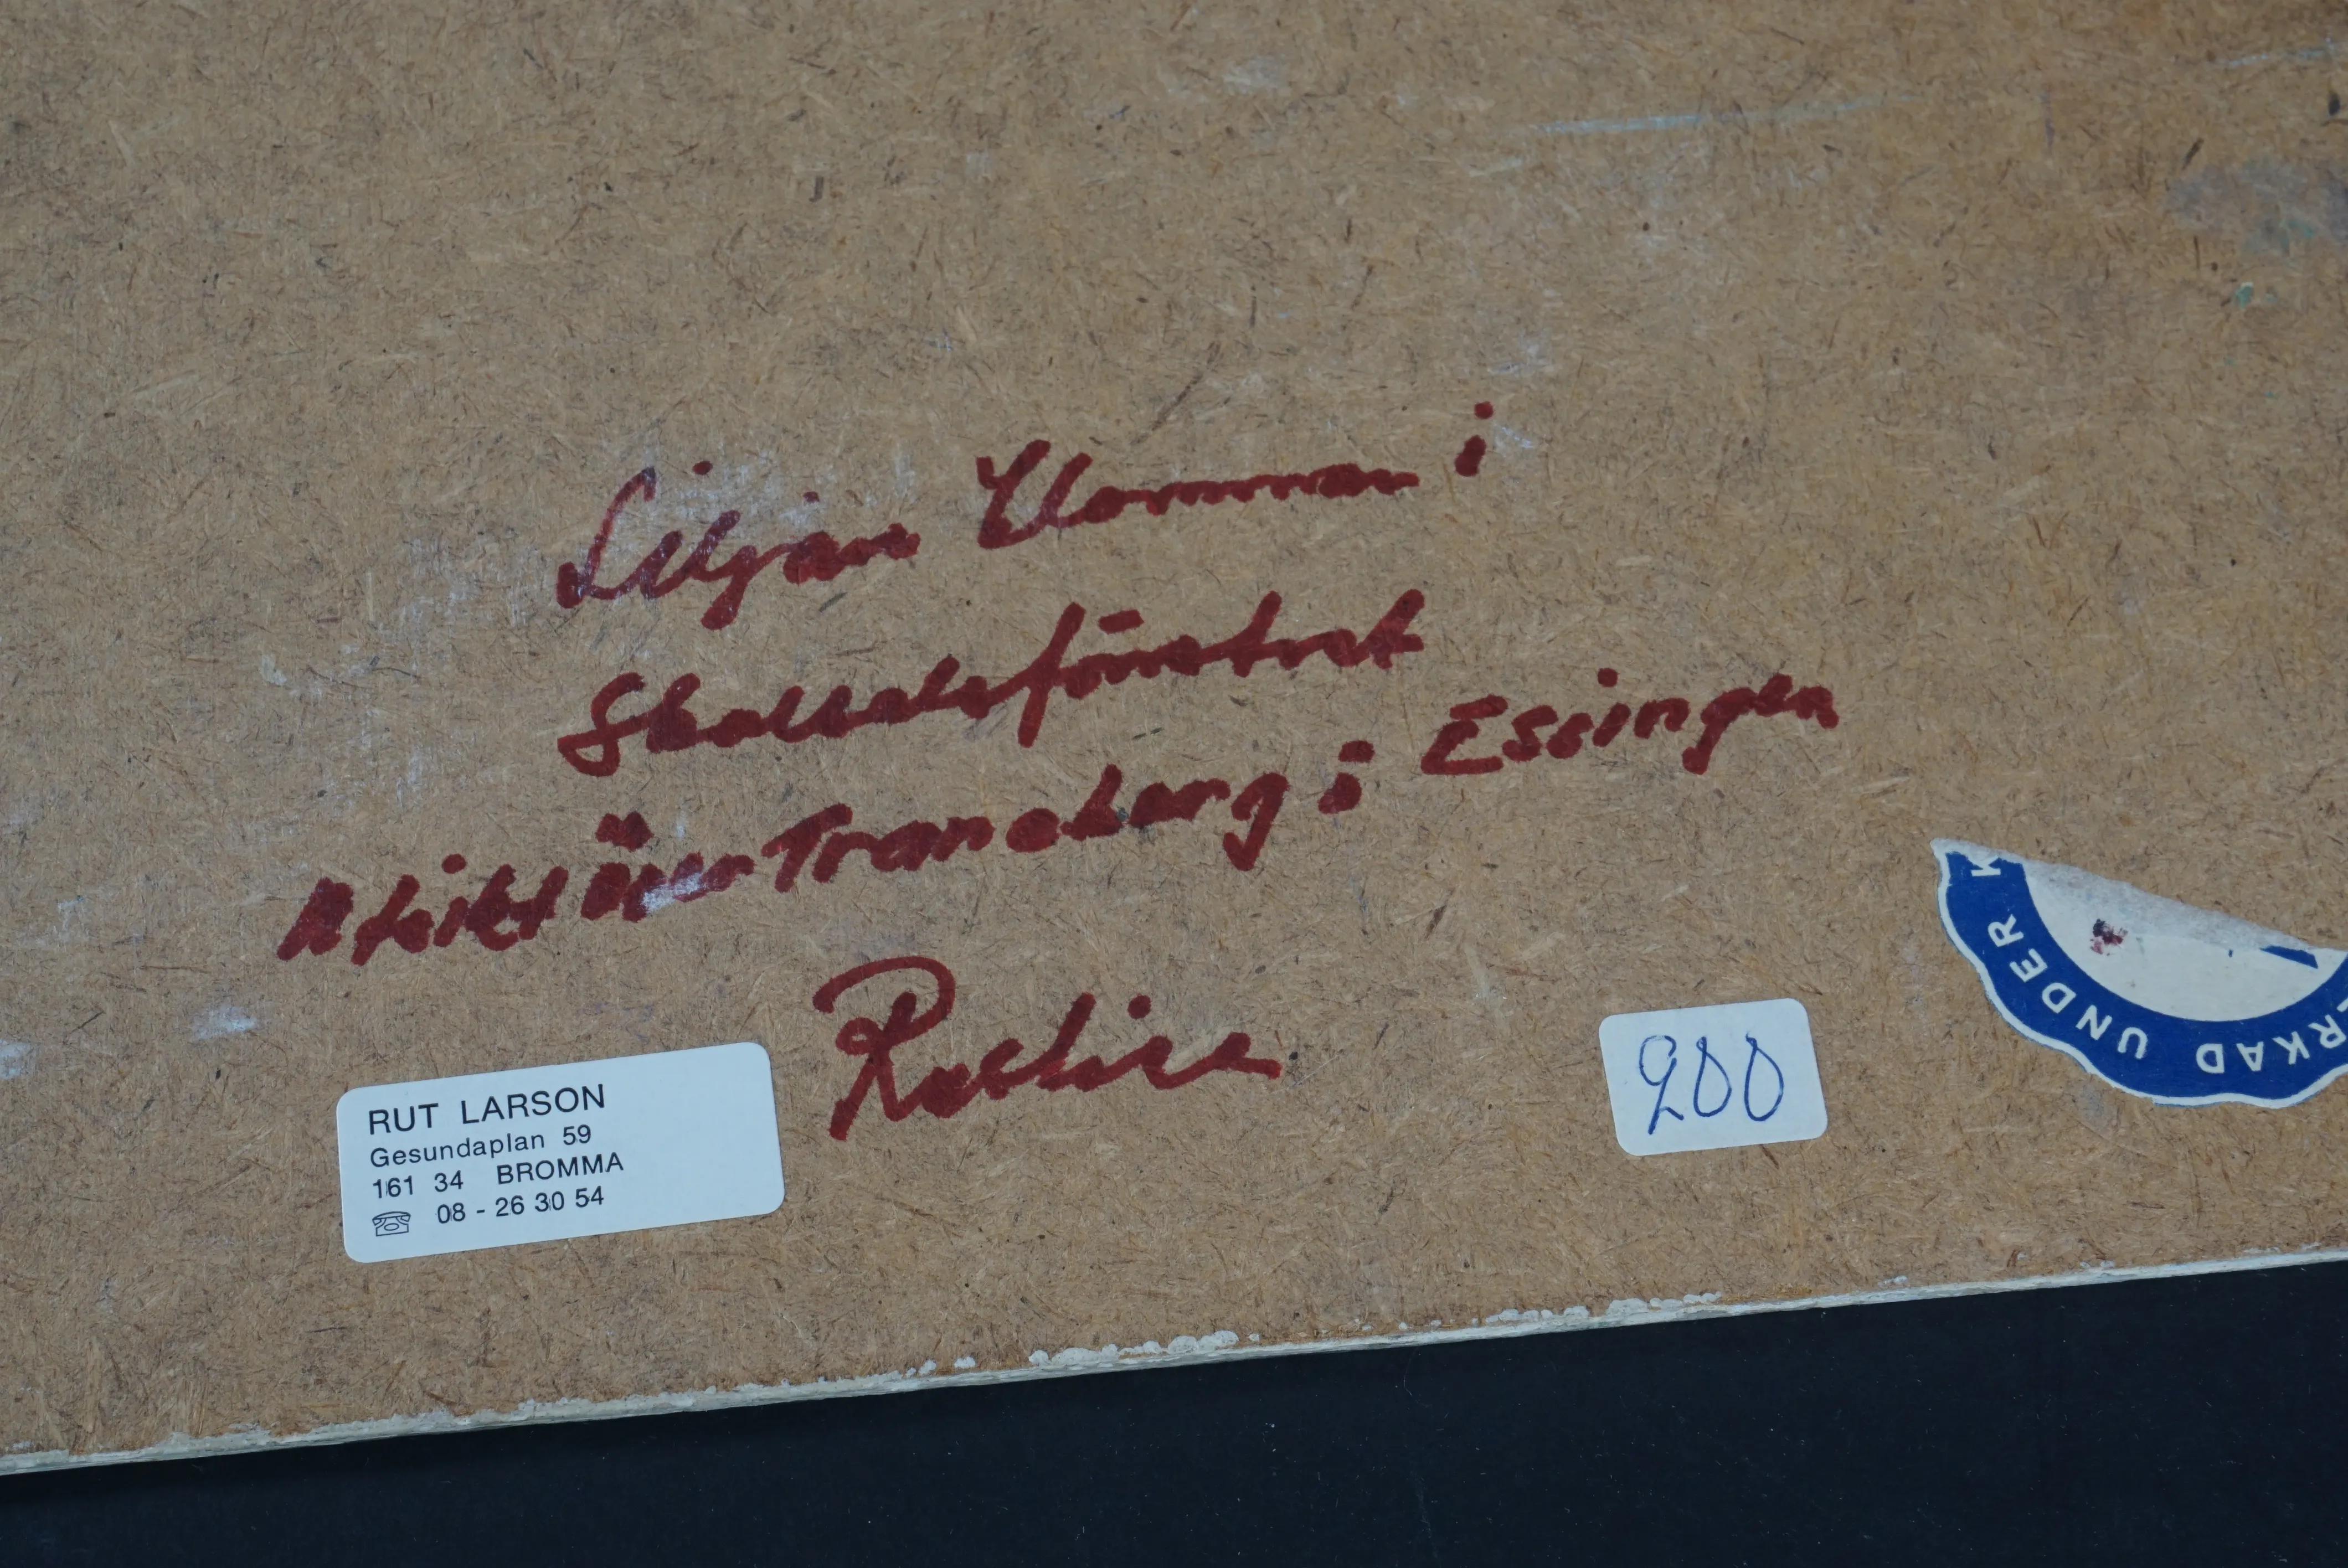 Liljan Blomman i
Skaldsfönstret
Utsikt över Traneberg i Essingen
RUT LARSON
Gesundaplan 59
161 34 BROMMA
08 - 26 30 54
900
RKAD UNDER K